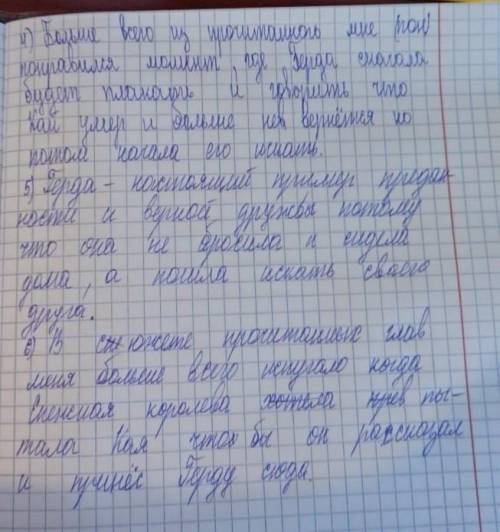 4) Больше всего из прочитанного мне
понравился момент, где Герда сначала
будет плакать и говорить что
Кай умер и больше не вернётся но
потом начала его искать.
5) Герда - настоящий пример предан-
ности и верной дружбы потому
что она не бросила и сидела
дома, а пошла искать своего
друга.
6) В сюжете прочитанных глав
меня больше всего испугало когда
Снежная королева пы-
тала Кая чтоб бы он рассказал
и принёс Герду сюда.